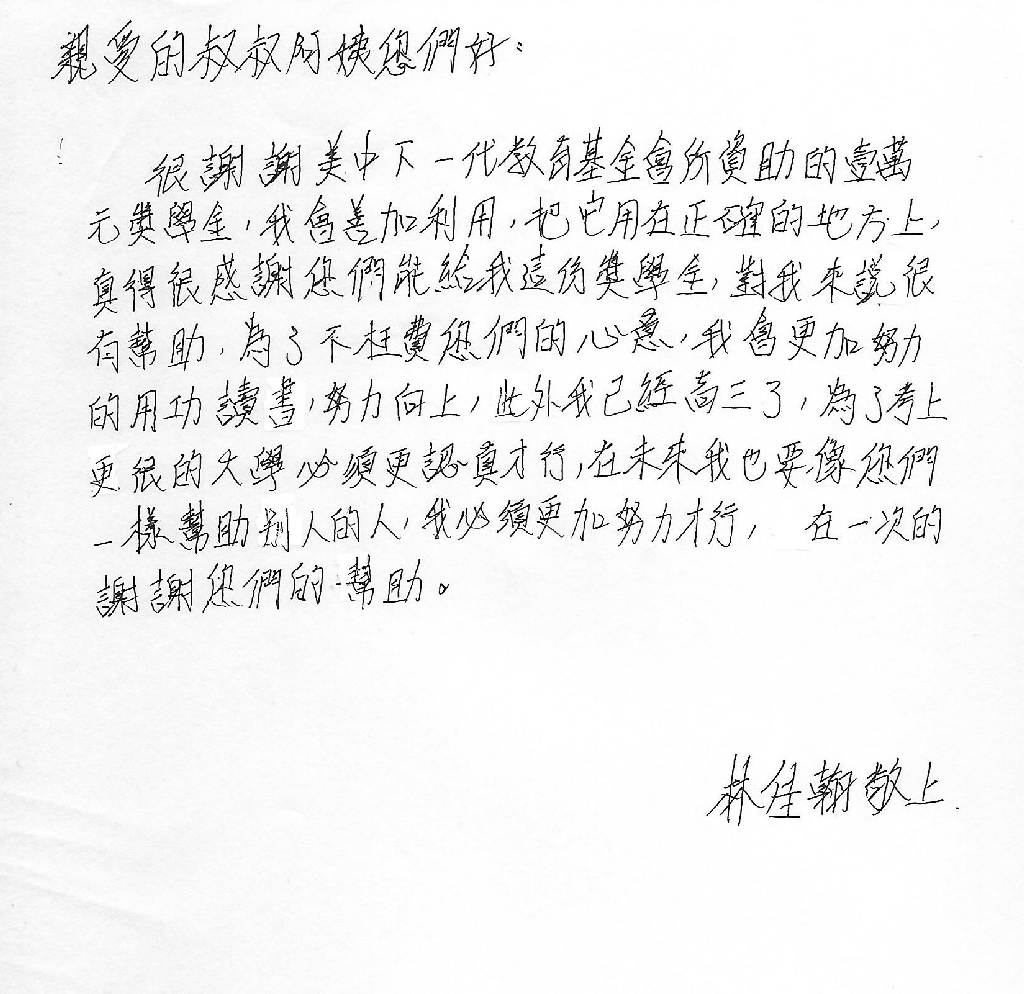 親愛的叔叔阿姨您們好：
很謝謝美中下一代教育基金會所資助的壹萬
元獎學金，我會善加利用，把它用在正確的地方上，
真得很感謝您們能給我這份獎學金，對我來說很
有幫助，為了不枉費您們的心意，我會更加努力
的用功讀書，努力向上，此外我已經高三了，為了考上
更很的大學必須更認真才行，在未來我也要像您們
一樣幫助別人的人，我必須更加努力才行， 在一次的
謝謝您們的幫助。
林佳翰敬上.